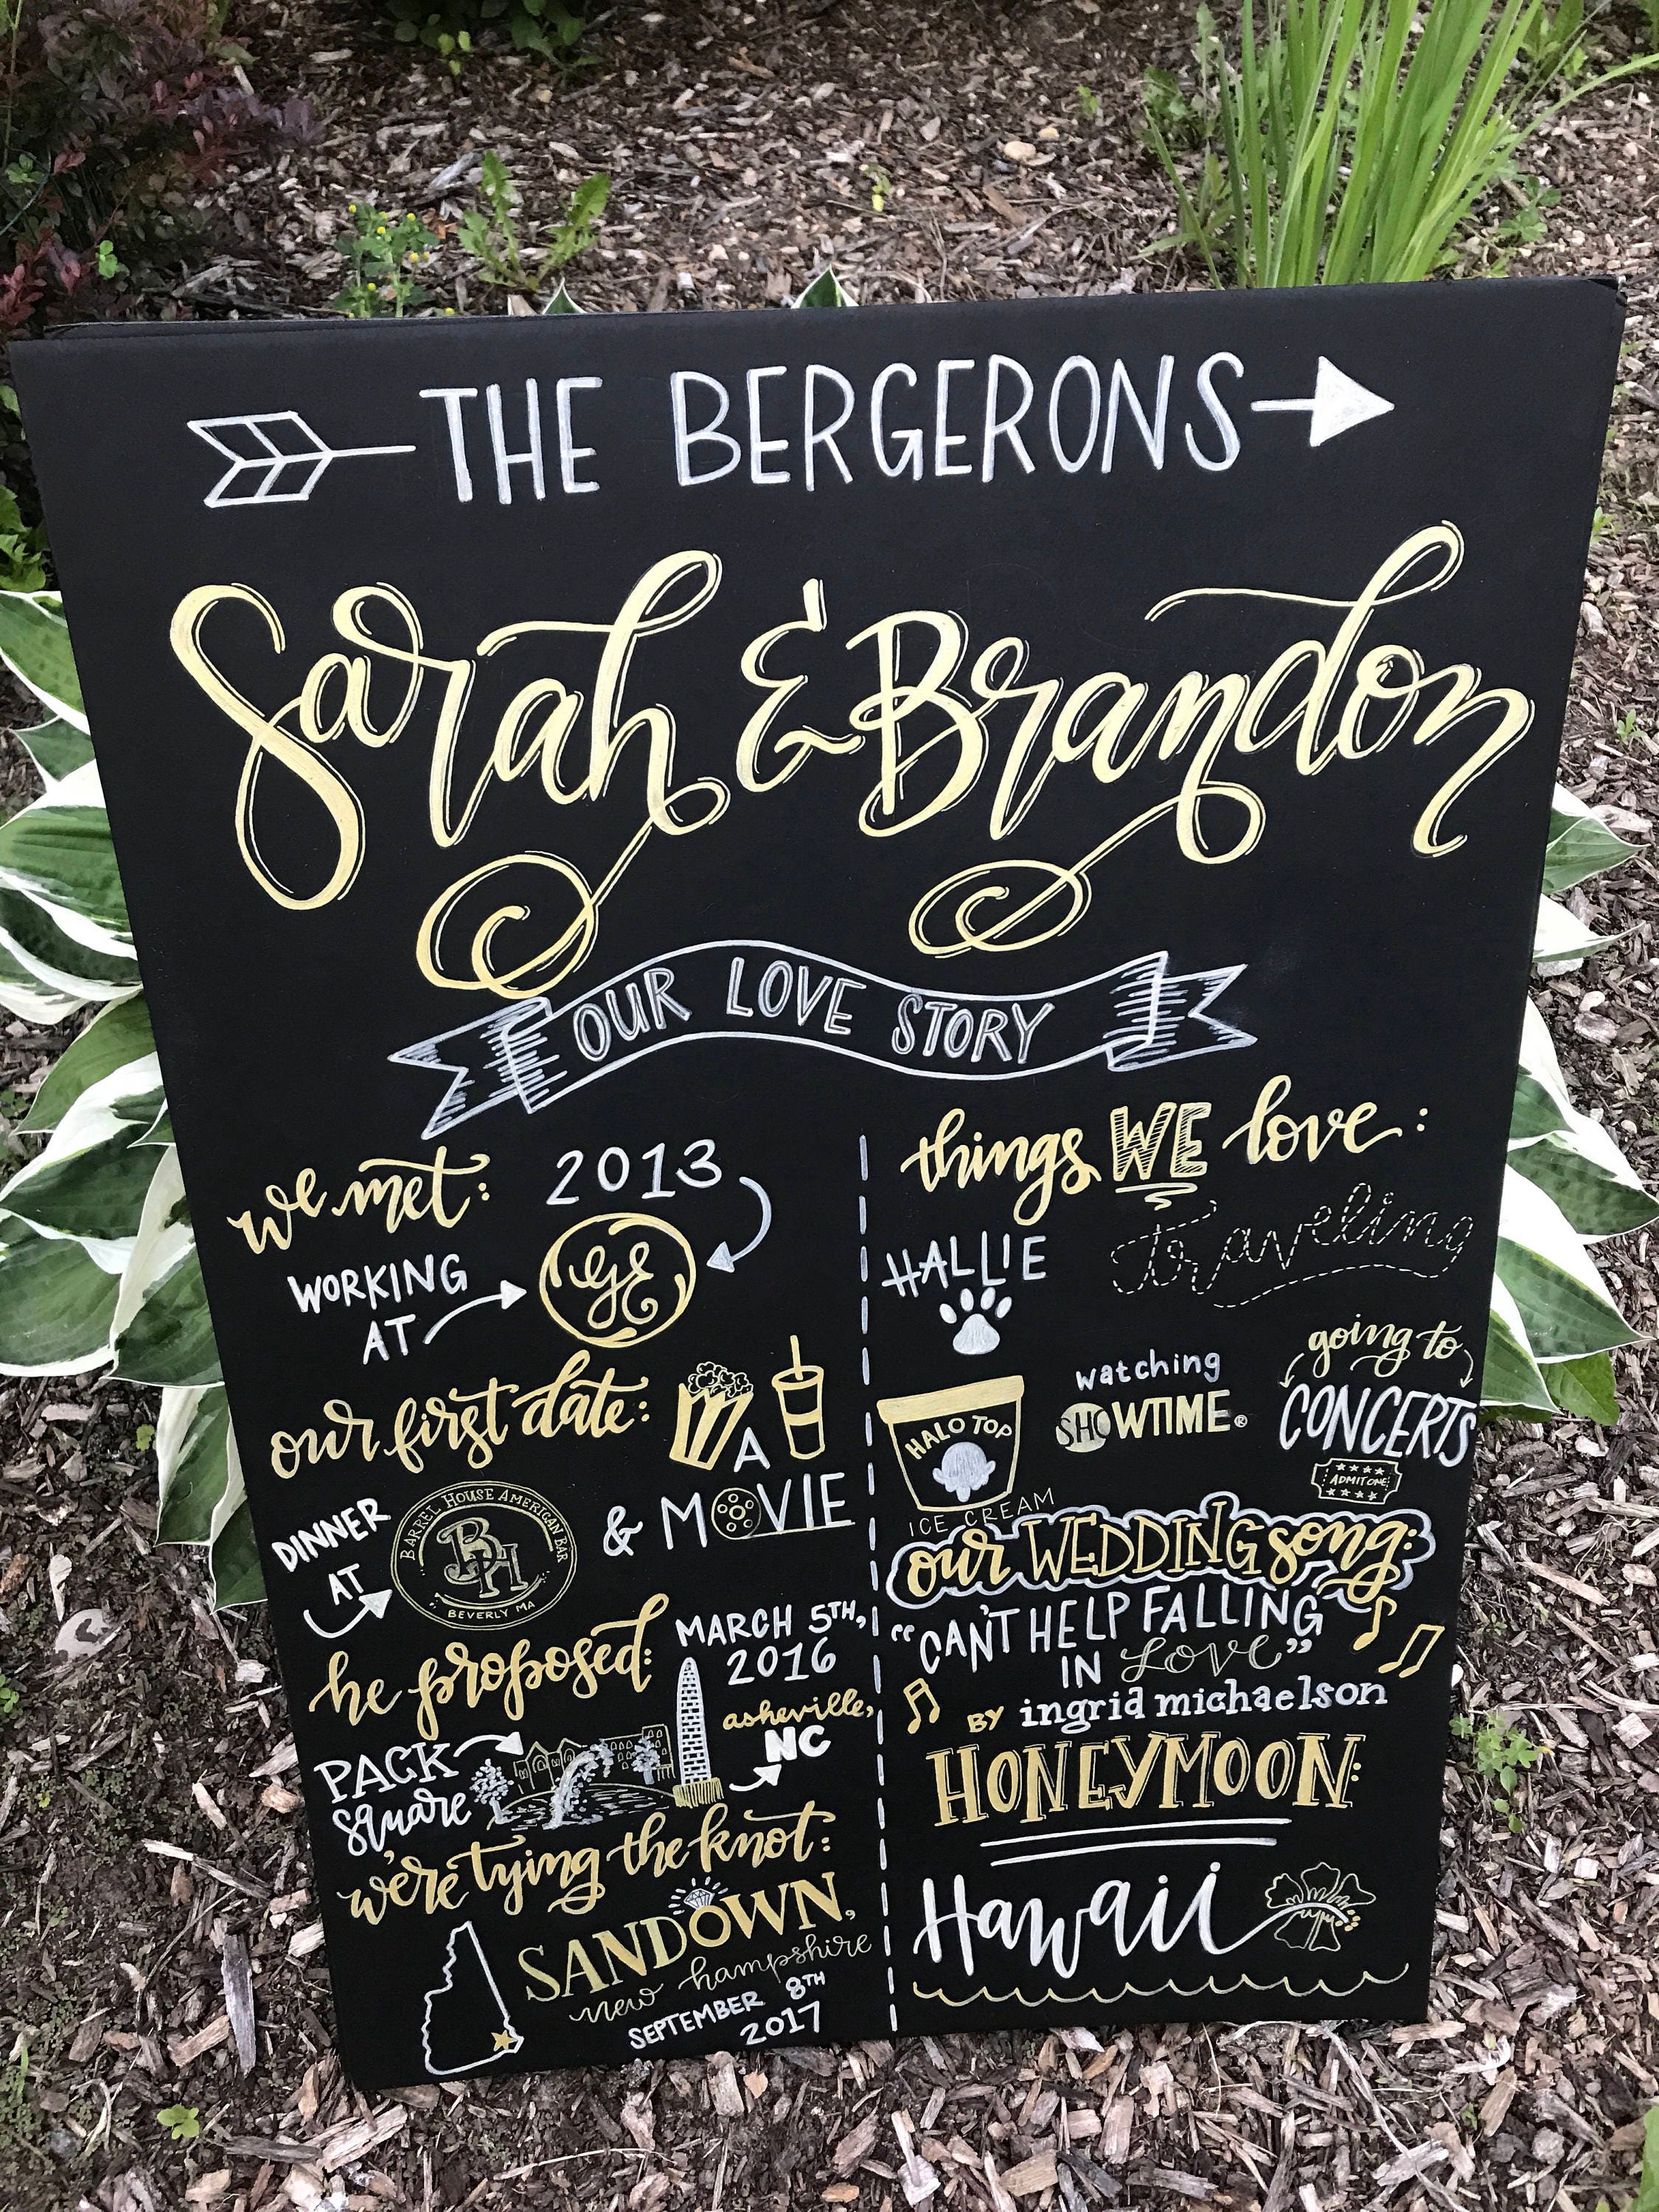 THE BERGERONS
Sarah & Brandon
OUR LOVE STORY
we met: 2013
WORKING
AT
GE
our first date:
DINNER
AT
BARREL HOUSE AMERICAN BAR
BH
BEVERLY MA
& A
MOVIE
he proposed: MARCH 5TH,
2016
PACK
square
asheville,
NC
we're tying the knot:
SANDOWN,
new hampshire
SEPTEMBER 8TH
2017
things WE love:
HALLIE
traveling
HALO TOP
ICE CREAM
watching
SHOWTIME®
going to
CONCERTS
ADMIT ONE
our WEDDING song:
"CAN'T HELP FALLING
IN LOVE"
BY ingrid michaelson
HONEYMOON:
Hawaii